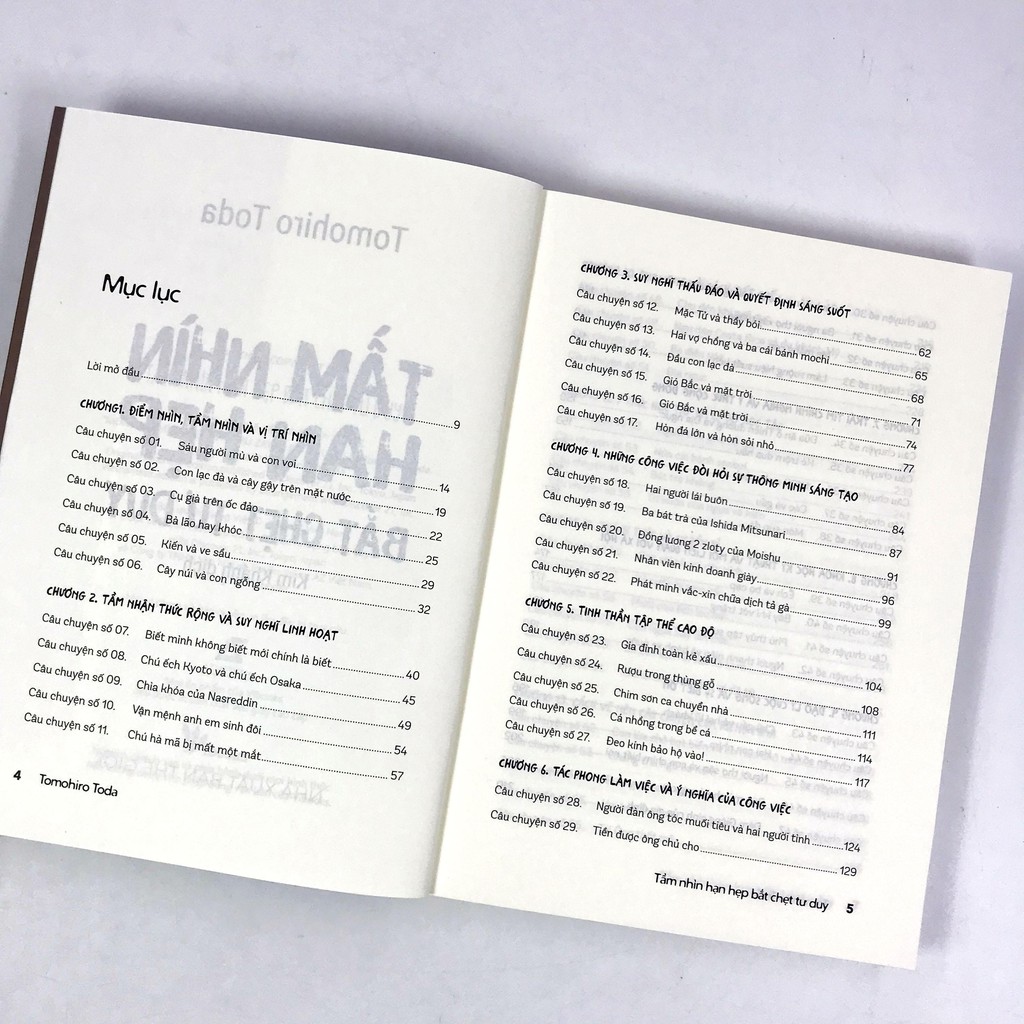 Mục lục
Lời mở đầu..........9
CHƯƠNG1. ĐIỂM NHÌN, TẦM NHÌN VÀ VỊ TRÍ NHÌN
Câu chuyện số 01. Sáu người mù và con voi..........14
Câu chuyện số 02. Con lạc đà và cây gậy trên mặt nước..........19
Câu chuyện số 03. Cụ già trên ốc đảo..........22
Câu chuyện số 04. Bà lão hay khóc..........25
Câu chuyện số 05. Kiến và ve sầu..........29
Câu chuyện số 06. Cây núi và con ngỗng..........32
CHƯƠNG 2. TẦM NHẬN THỨC RỘNG VÀ SUY NGHĨ LINH HOẠT
Câu chuyện số 07. Biết mình không biết mới chính là biết..........40
Câu chuyện số 08. Chú ếch Kyoto và chú ếch Osaka..........45
Câu chuyện số 09. Chìa khóa của Nasreddin..........49
Câu chuyện số 10. Vận mệnh anh em sinh đôi..........54
Câu chuyện số 11. Chú hà mã bị mất một mắt..........57
4 Tomohiro Toda
CHƯƠNG 3. SUY NGHĨ THẤU ĐÁO VÀ QUYẾT ĐỊNH SÁNG SUỐT
Câu chuyện số 12. Mặc Tử và thầy bói..........62
Câu chuyện số 13. Hai vợ chồng và ba cái bánh mochi..........65
Câu chuyện số 14. Đầu con lạc đà..........68
Câu chuyện số 15. Gió Bắc và mặt trời..........71
Câu chuyện số 16. Gió Bắc và mặt trời..........74
Câu chuyện số 17. Hòn đá lớn và hòn sỏi nhỏ..........77
CHƯƠNG 4. NHỮNG CÔNG VIỆC ĐÒI HỎI SỰ THÔNG MINH SÁNG TẠO
Câu chuyện số 18. Hai người lái buôn..........84
Câu chuyện số 19. Ba bát trà của Ishida Mitsunari..........87
Câu chuyện số 20. Đồng lương 2 zloty của Moishu..........91
Câu chuyện số 21. Nhân viên kinh doanh giày..........96
Câu chuyện số 22. Phát minh vắc-xin chữa dịch tả gà..........99
CHƯƠNG 5. TINH THẦN TẬP THỂ CAO ĐỘ
Câu chuyện số 23. Gia đình toàn kẻ xấu..........104
Câu chuyện số 24. Rượu trong thùng gỗ..........108
Câu chuyện số 25. Chim sơn ca chuyển nhà..........111
Câu chuyện số 26. Cá nhồng trong bể cá..........114
Câu chuyện số 27. Đeo kính bảo hộ vào!..........117
CHƯƠNG 6. TÁC PHONG LÀM VIỆC VÀ Ý NGHĨA CỦA CÔNG VIỆC
Câu chuyện số 28. Người đàn ông tóc muối tiêu và hai người tình..........124
Câu chuyện số 29. Tiền được ông chủ cho..........129
Tầm nhìn hạn hẹp bắt chẹt tư duy 5